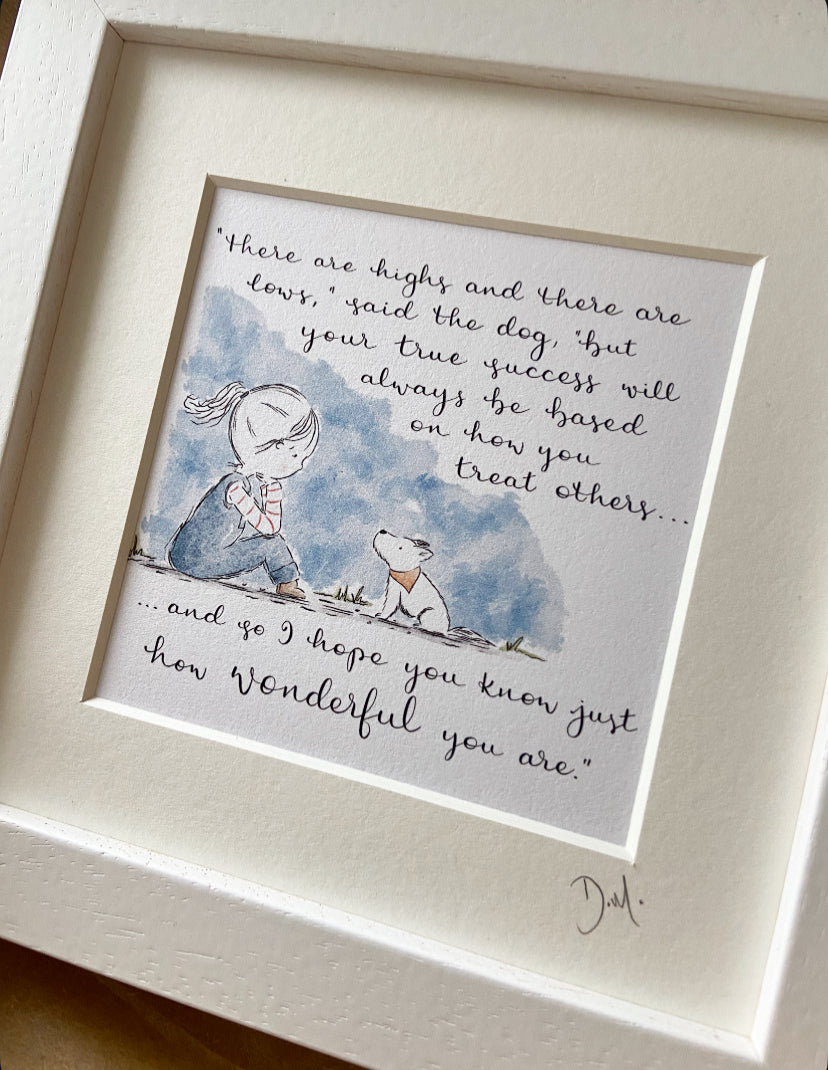 "there are highs and there are
lows," said the dog, "but
your true success will
always be based
on how you
treat others...
...and so I hope you know just
how wonderful you are."
D.M.